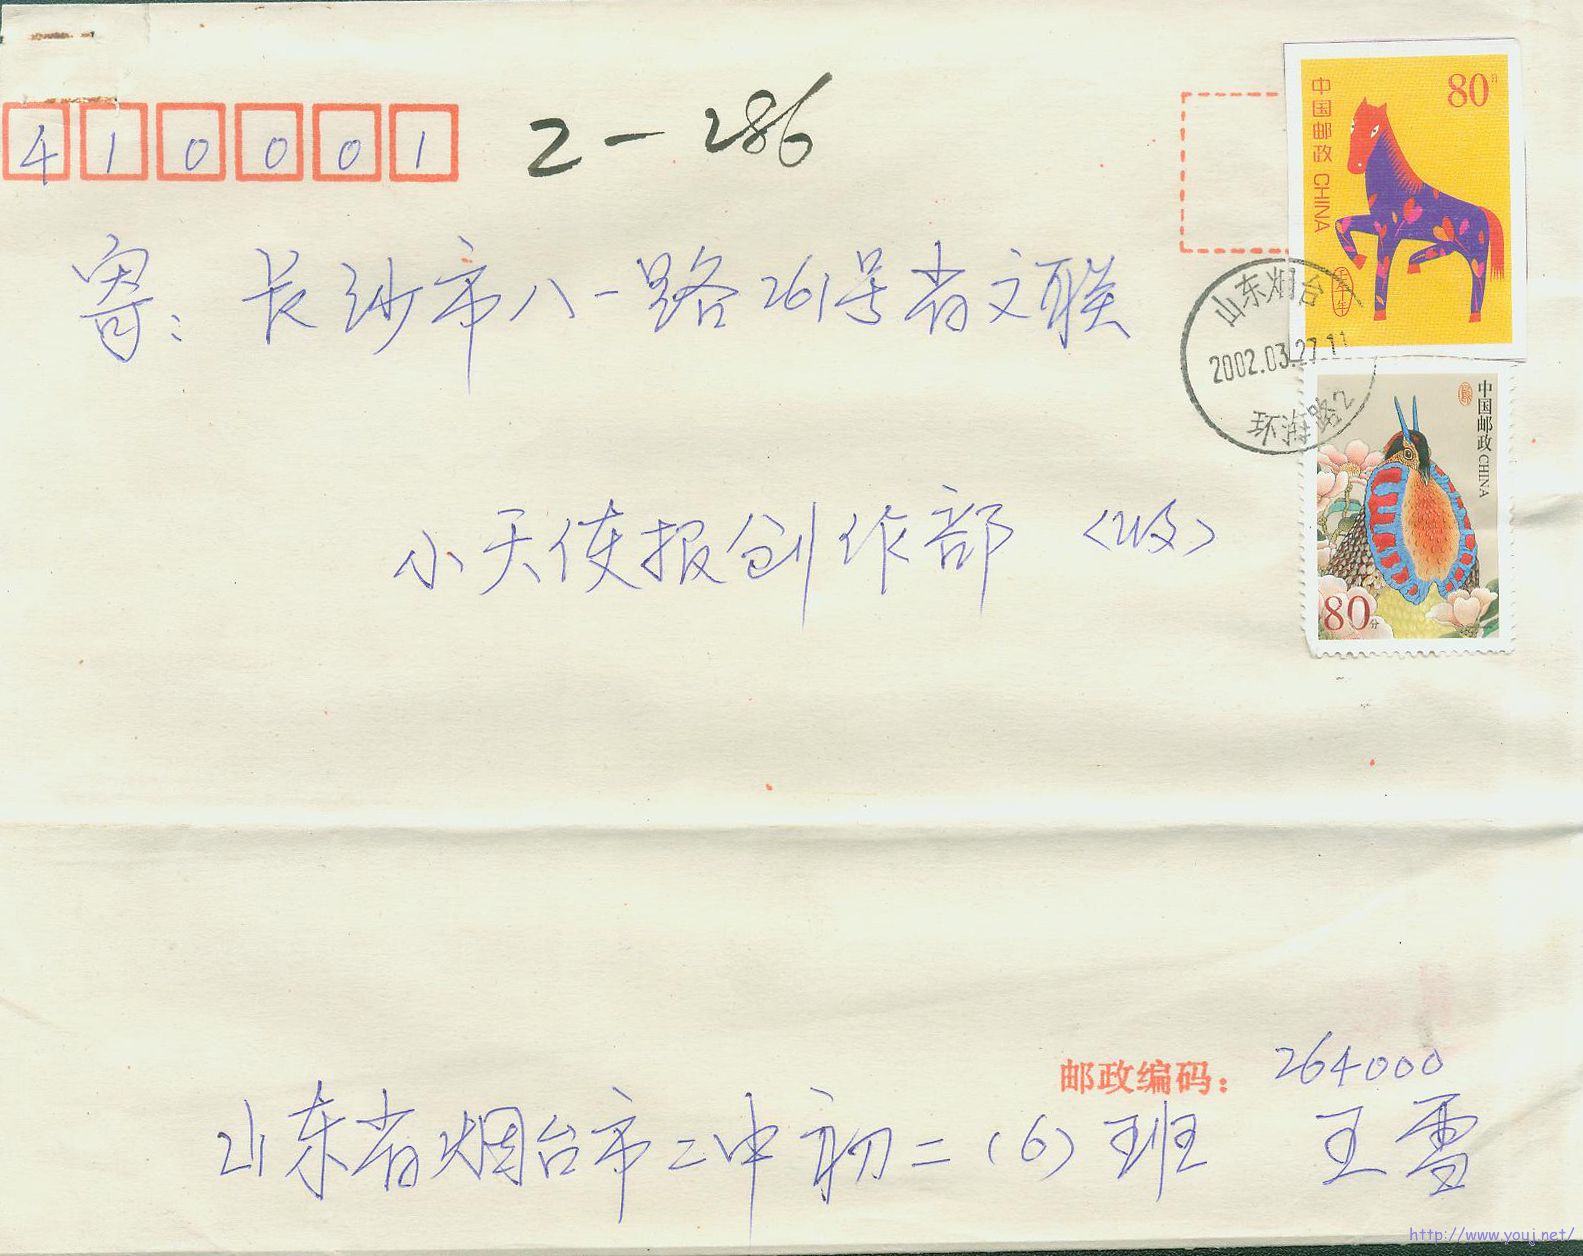 410001
2-286
中国邮政 CHINA
80分
寄：长沙市八一路261号省文联
山东烟台
2002.03.27.11
环海路2
中国邮政 CHINA
80分
小天使报创作部（收）
邮政编码：264000
山东省烟台市二中初二（6）班 王雪
http://www.youj.net/